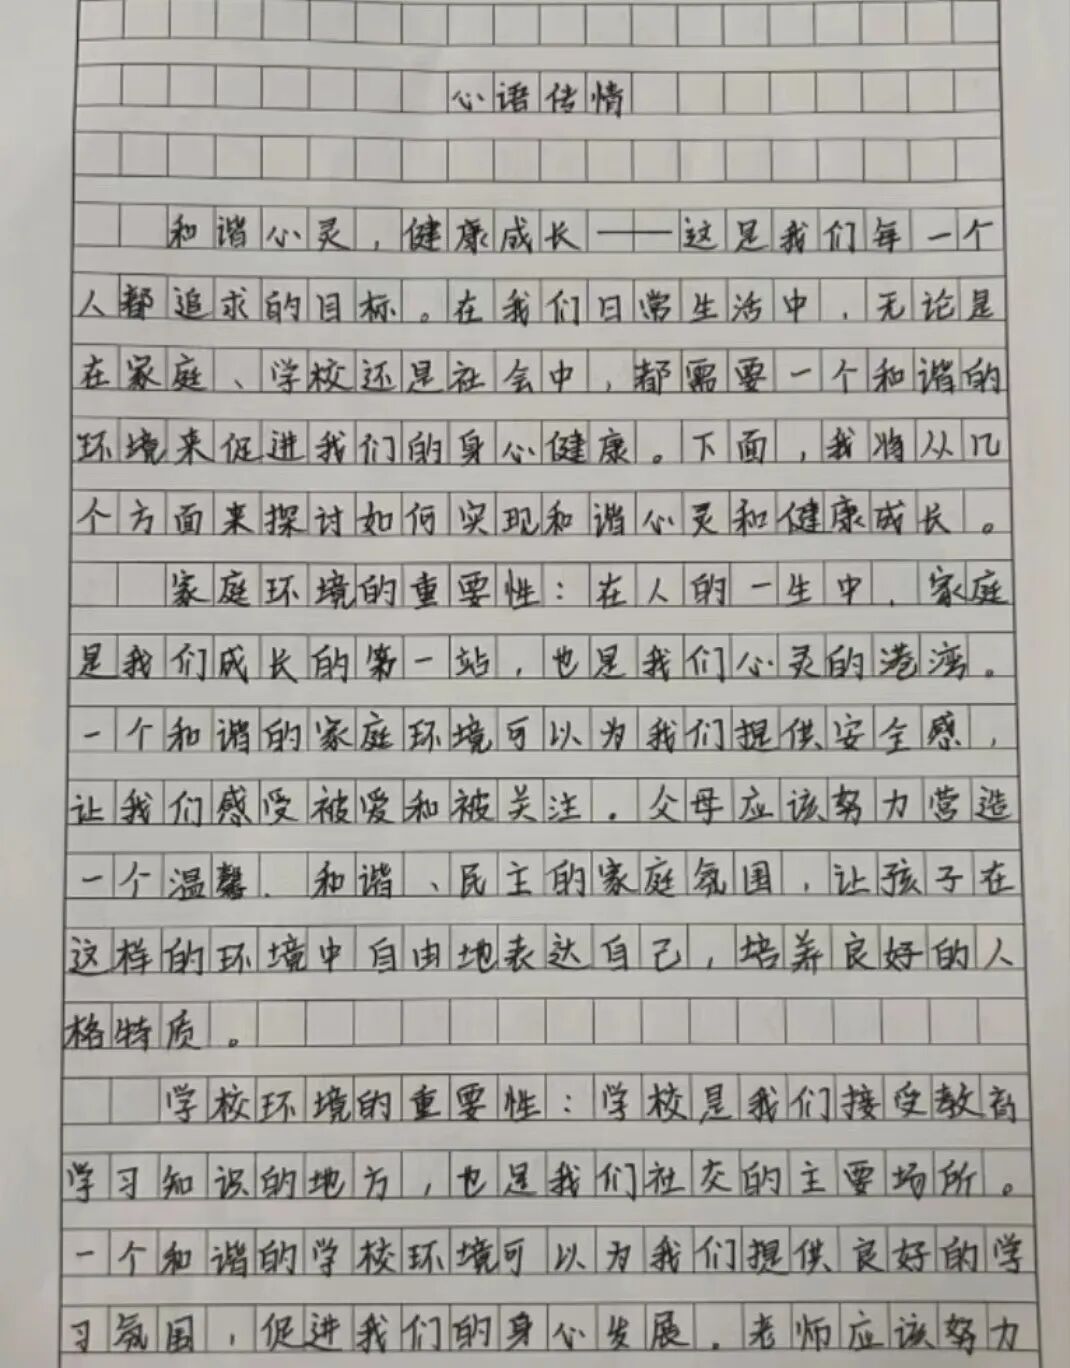 心语传情
和谐心灵，健康成长——这是我们每一个
人都追求的目标。在我们日常生活中，无论是
在家庭、学校还是社会中，都需要一个和谐的
环境来促进我们的身心健康。下面，我将从几
个方面来探讨如何实现和谐心灵和健康成长。
家庭环境的重要性：在人的一生中，家庭
是我们成长的第一站，也是我们心灵的港湾。
一个和谐的家庭环境可以为我们提供安全感，
让我们感受被爱和被关注。父母应该努力营造
一个温馨、和谐、民主的家庭氛围，让孩子在
这样的环境中自由地表达自己，培养良好的人
格特质。
学校环境的重要性：学校是我们接受教育
学习知识的地方，也是我们社交的主要场所。
一个和谐的学校环境可以为我们提供良好的学
习氛围，促进我们的身心发展。老师应该努力